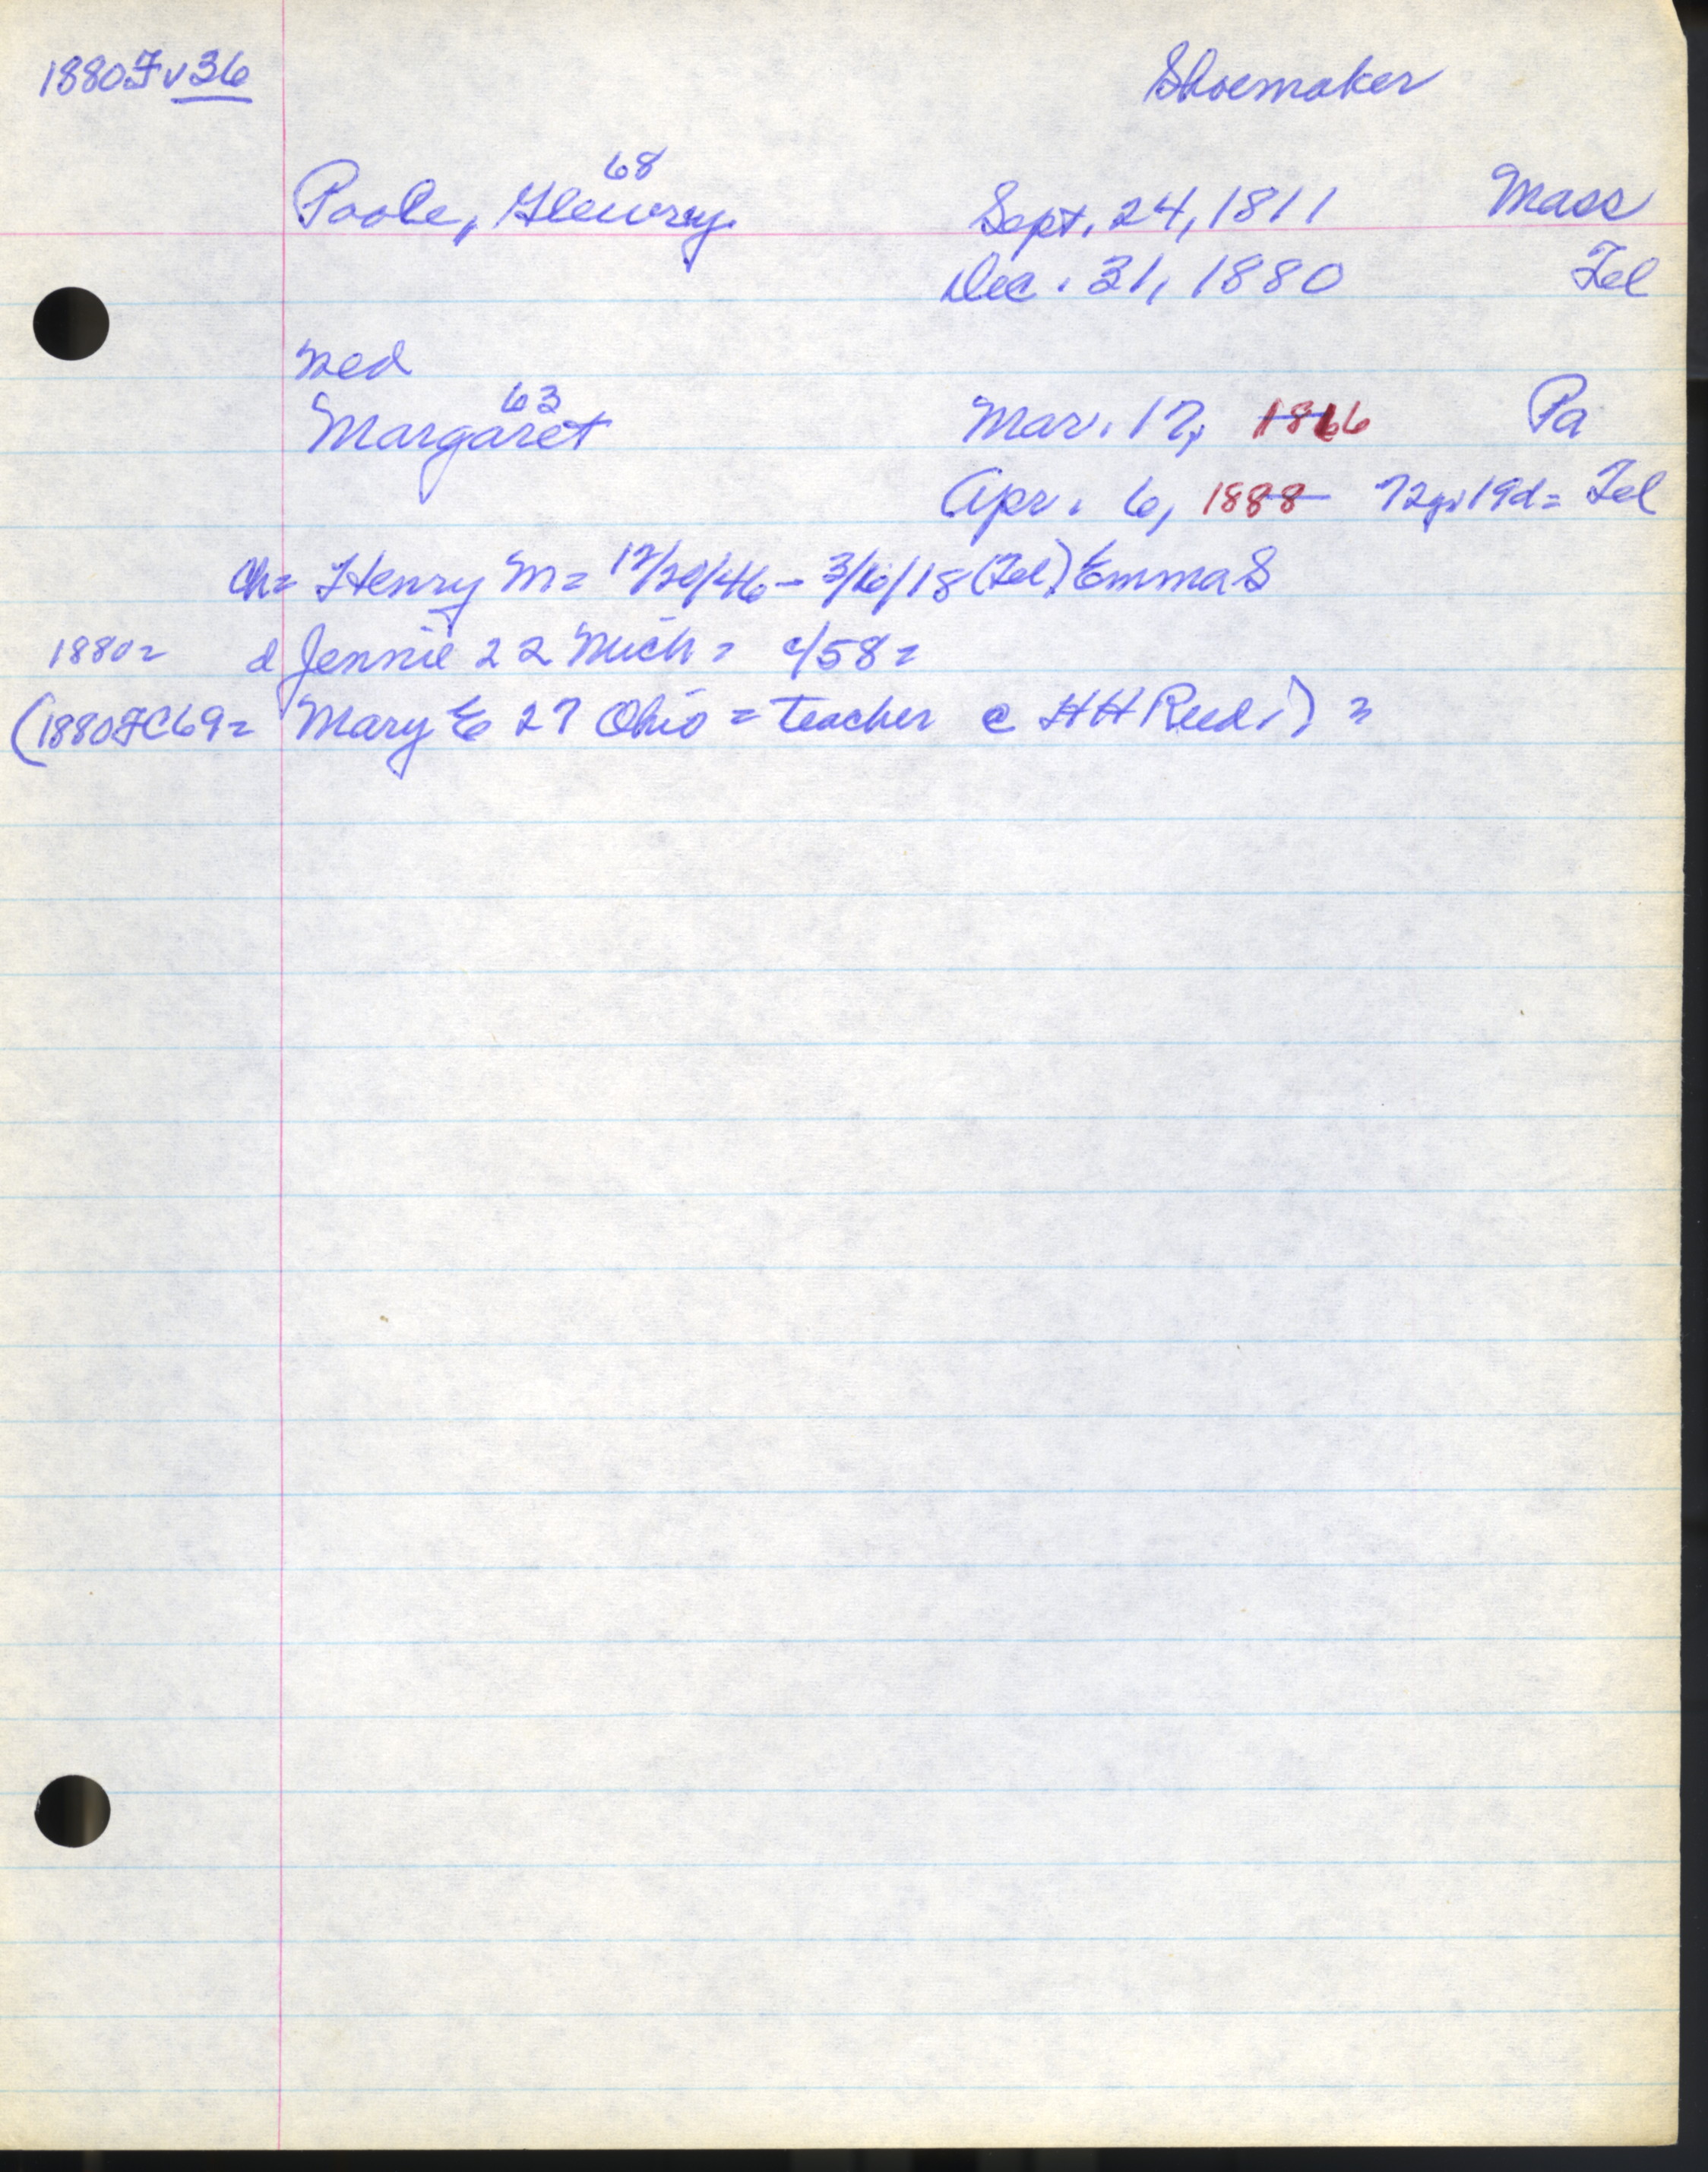 1880Fv36
Shoemaker
68
Poole, Henry Sept. 24, 1811 Mass
Dec. 31, 1880 Fel
med
63
Margaret Mar. 17, 1816 Pa
Apr. 6, 1888 72y 19d= Fel
ch= Henry M= 12/20/46 - 3/16/18 (Fel) Emma S
1880= d Jennie 22 Mich = c/58=
(1880FC69= Mary E 27 Ohio = teacher c HH Reed.) =